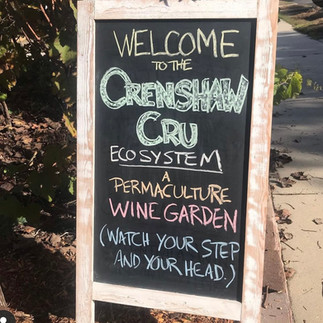 WELCOME
TO THE
CRENSHAW
CRU
ECOSYSTEM
A
PERMACULTURE
WINE GARDEN
(WATCH YOUR STEP
AND YOUR HEAD.)